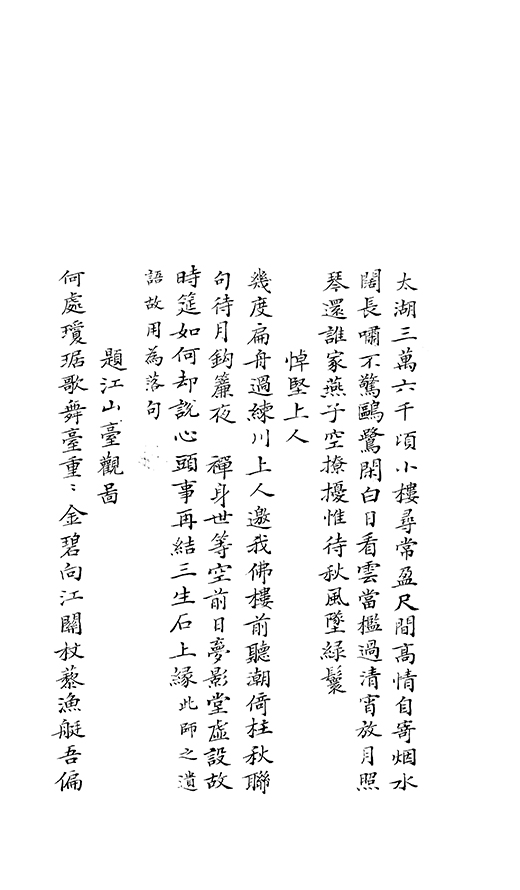 太湖三萬六千頃小樓尋常盈尺間高情自寄烟水
闊長嘯不驚鷗鷺閑白日看雲當檻過清宵放月照
琴還誰家燕子空撩擾惟待秋風墜綠鬟
悼堅上人
幾度扁舟過練川上人邀我佛樓前聽潮倚柱秋聯
句待月鈎簾夜 禪身世等空前日夢影堂虛設故
時筵如何却說心頭事再結三生石上緣此師之遺
語故用為落句
題江山臺觀啚
何處瓊琚歌舞臺重〻金碧向江開杖藜漁艇吾偏